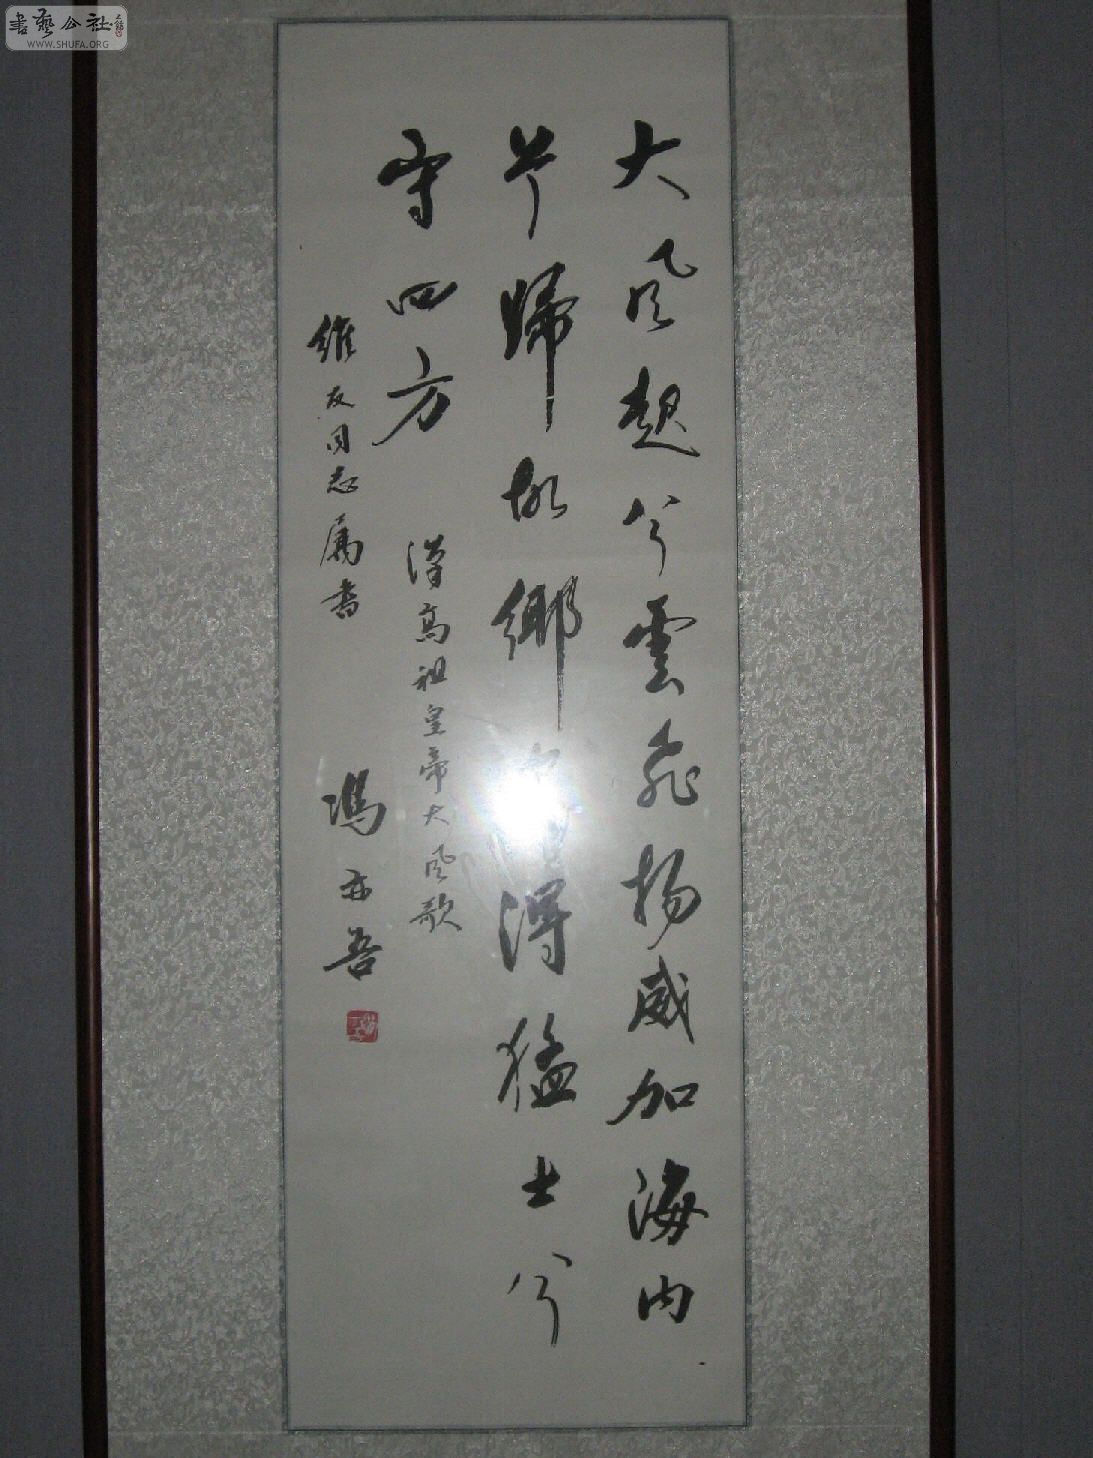 書藝公社
WWW.SHUFA.ORG
大風起兮雲飛揚威加海内
兮歸故鄉得猛士兮
守四方
漢高祖皇帝大風歌
維友同志属書
馮亦吾